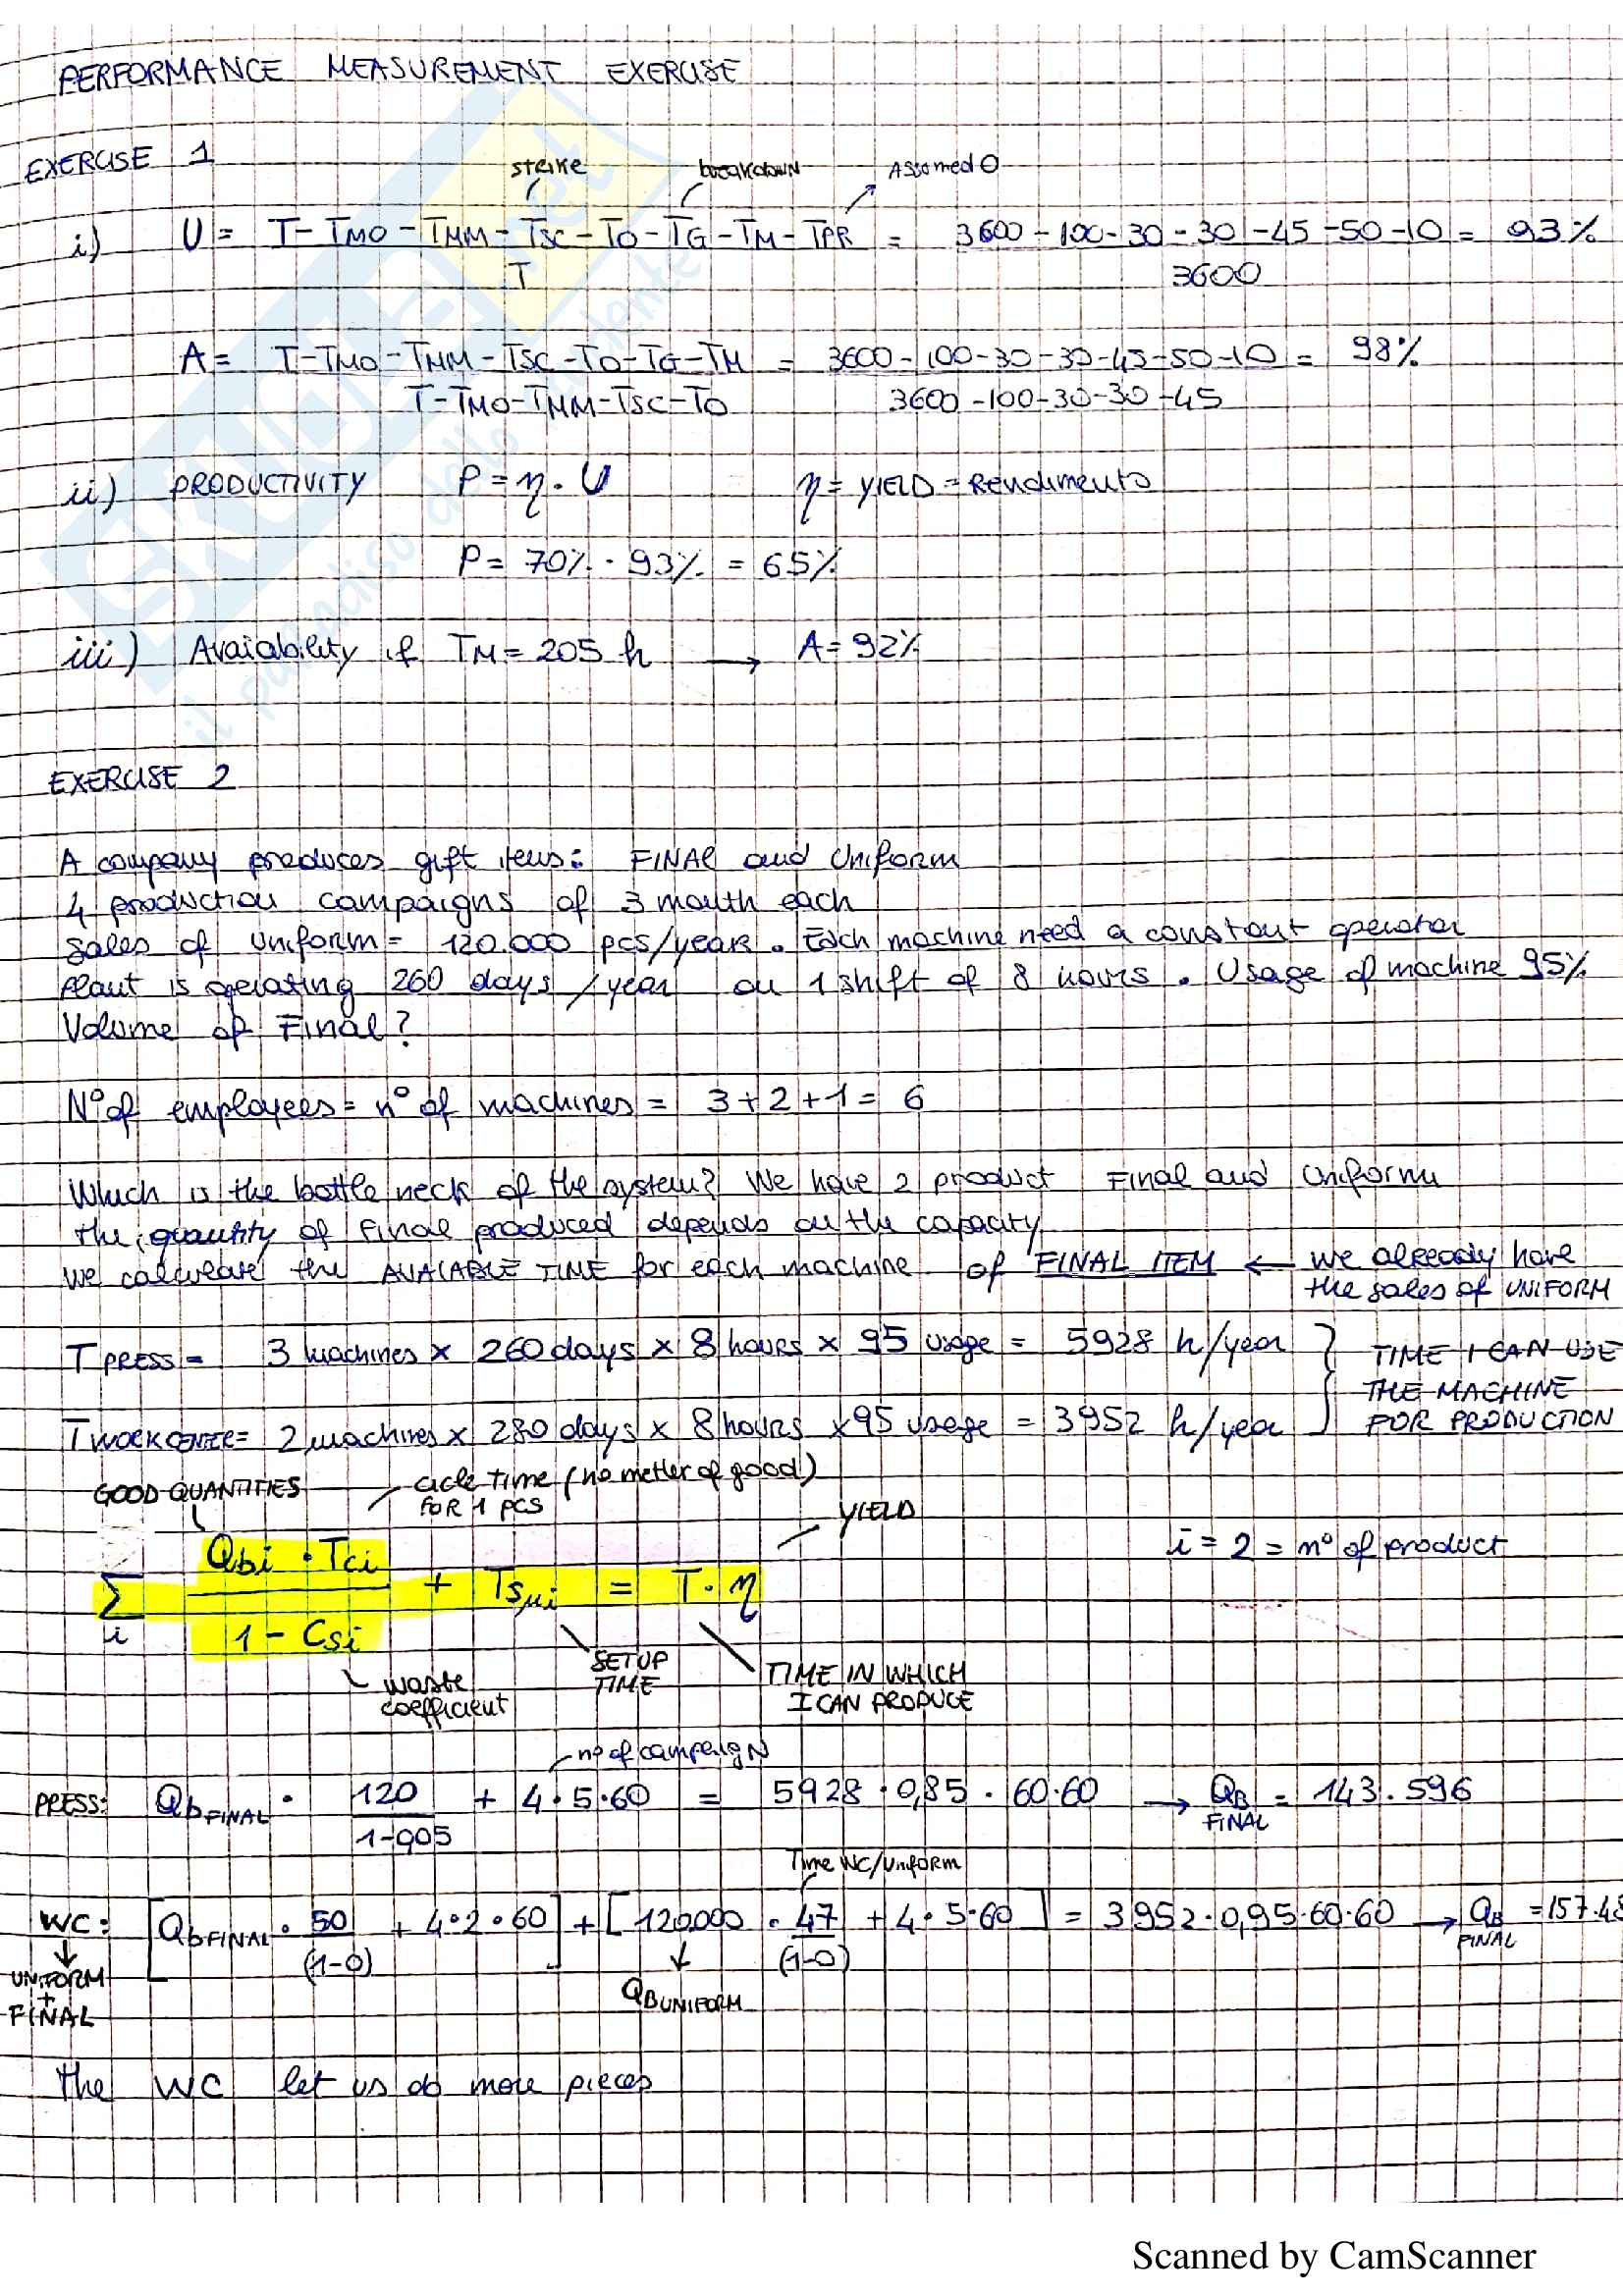 PERFORMANCE MEASUREMENT EXERCISE
EXERCISE 1
strike breakdown Assumed 0
i) U = T - TMO - TMM - TSC - TO - TG - TM - TPR = 3600 - 100 - 30 - 30 - 45 - 50 - 10 = 93%
T 3600
A = T - TMO - TMM - TSC - TO - TG - TM = 3600 - 100 - 30 - 30 - 45 - 50 - 10 = 98%
T - TMO - TMM - TSC - TO 3600 - 100 - 30 - 30 - 45
ii) PRODUCTIVITY P = η · U η = YIELD = Rendimento
P = 70% · 93% = 65%
iii) Avaiability if TM = 205 h → A = 92%
EXERCISE 2
A company produces gift items: FINAL and Uniform
4 production campaigns of 3 month each
sales of uniform = 120.000 pcs/year. Each machine need a constant operator
Plant is operating 260 days / year on 1 shift of 8 hours. Usage of machine 95%
Volume of Final?
N° of employees = n° of machines = 3 + 2 + 1 = 6
Which is the bottle neck of the system? We have 2 product Final and Uniform
the quantity of Final produced depends on the capacity
We calculate the AVAIABLE TIME for each machine of FINAL ITEM ← we already have
the sales of UNIFORM
T PRESS = 3 machines × 260 days × 8 hours × 95 usage = 5928 h/year } TIME I CAN USE
THE MACHINE
T WORK CENTER = 2 machines × 280 days × 8 hours × 95 usage = 3952 h/year FOR PRODUCTION
GOOD QUANTITIES cicle time (no metter of good)
FOR 1 PCS
YIELD
Σi Qbi · Tci + Tsμi = T · η i = 2 = n° of product
1 - Csi
SETUP TIME
TIME IN WHICH
I CAN PRODUCE
waste
coefficient
no of campaign
PRESS: Qb FINAL · 120 + 4 · 5 · 60 = 5928 · 0,85 · 60 · 60 → QB FINAL = 143.596
1 - 905
Time WC/Uniform
WC: [Qb FINAL · 50 + 4 · 2 · 60] + [120.000 · 47 + 4 · 5 · 60] = 3952 · 0,95 · 60 · 60 → QB FINAL = 157.48
(1-0) (1-0)
UNIFORM
+
FINAL
QB UNIFORM
the WC let us do more pieces
SKUOLA.net
il paradiso dello studente
Scanned by CamScanner